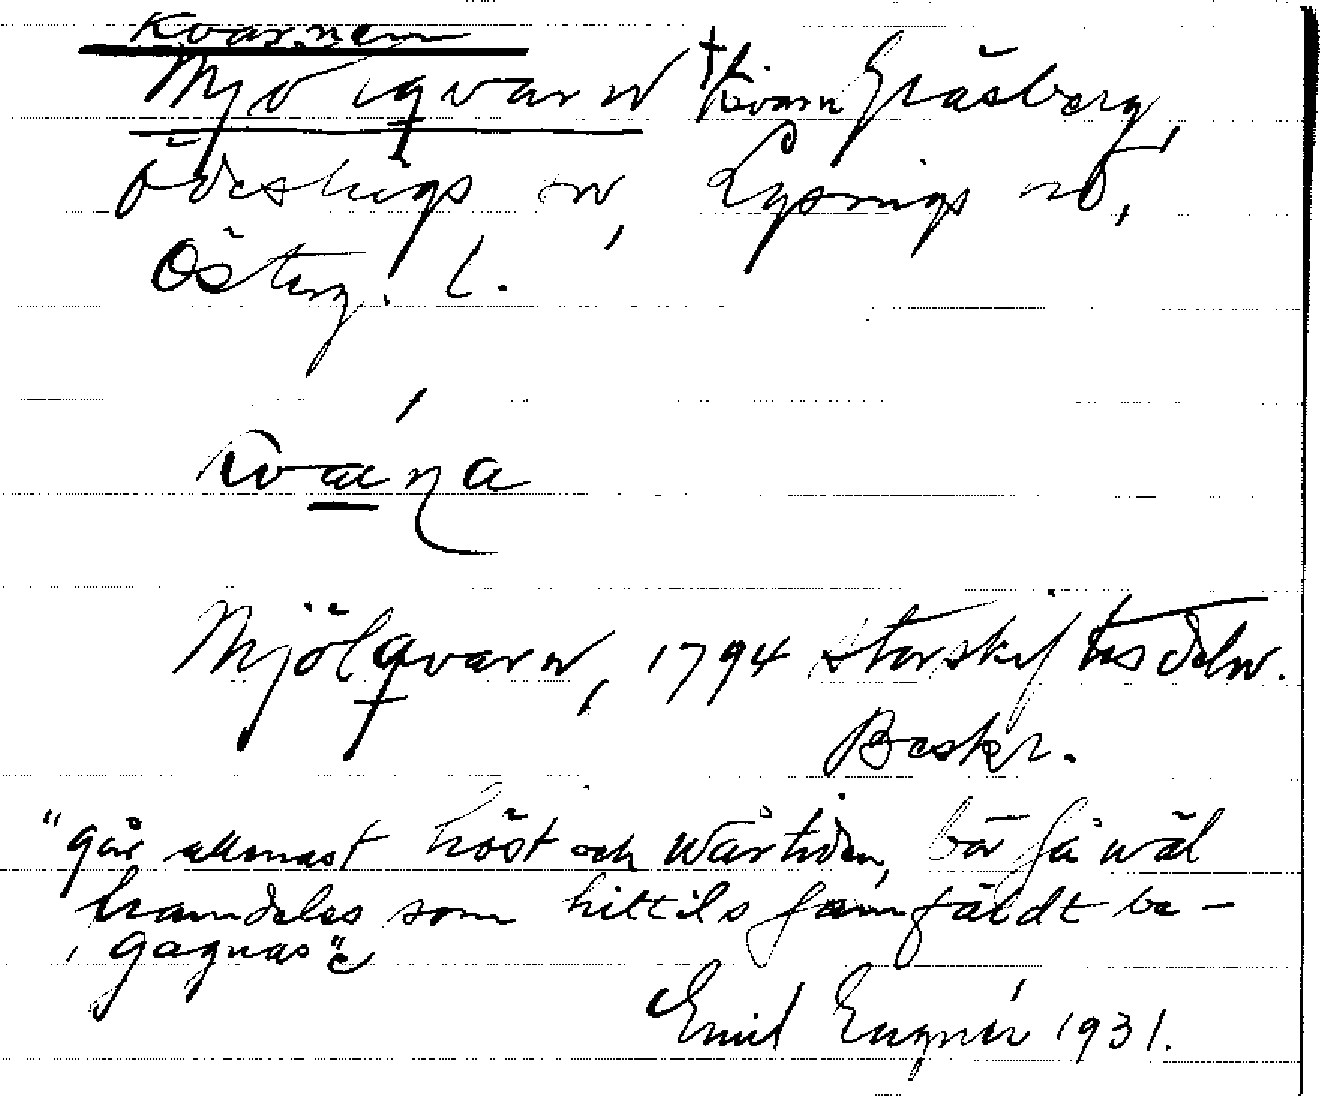 Kvarnen
Mjölqvarn † Kvarn Gräsberg,
Ödeshögs sn, Lysings hd,
Österg. l.
kva̲ɳa
Mjölqvarn, 1794 storskiftesdeln.
Beskr.
"går allenast höst och wårtiden, bör få wäl
framdeles som hittils jemfäldt be-
gagnas"
Emil Engnér 1931.